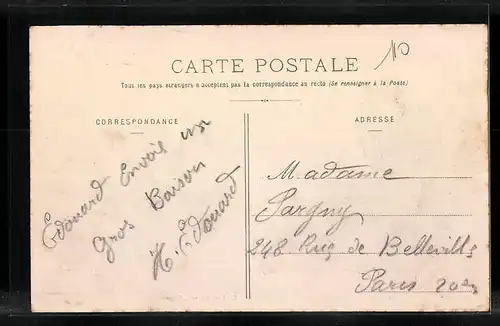 CARTE POSTALE
Tous les pays étrangers n'acceptent pas la correspondance au recto (Se renseigner à la Poste)
CORRESPONDANCE
ADRESSE
Edouard Envoie un
gros Baison
H. Edouard
Madame
Pargny
248 Rue de Belleville
Paris 20e